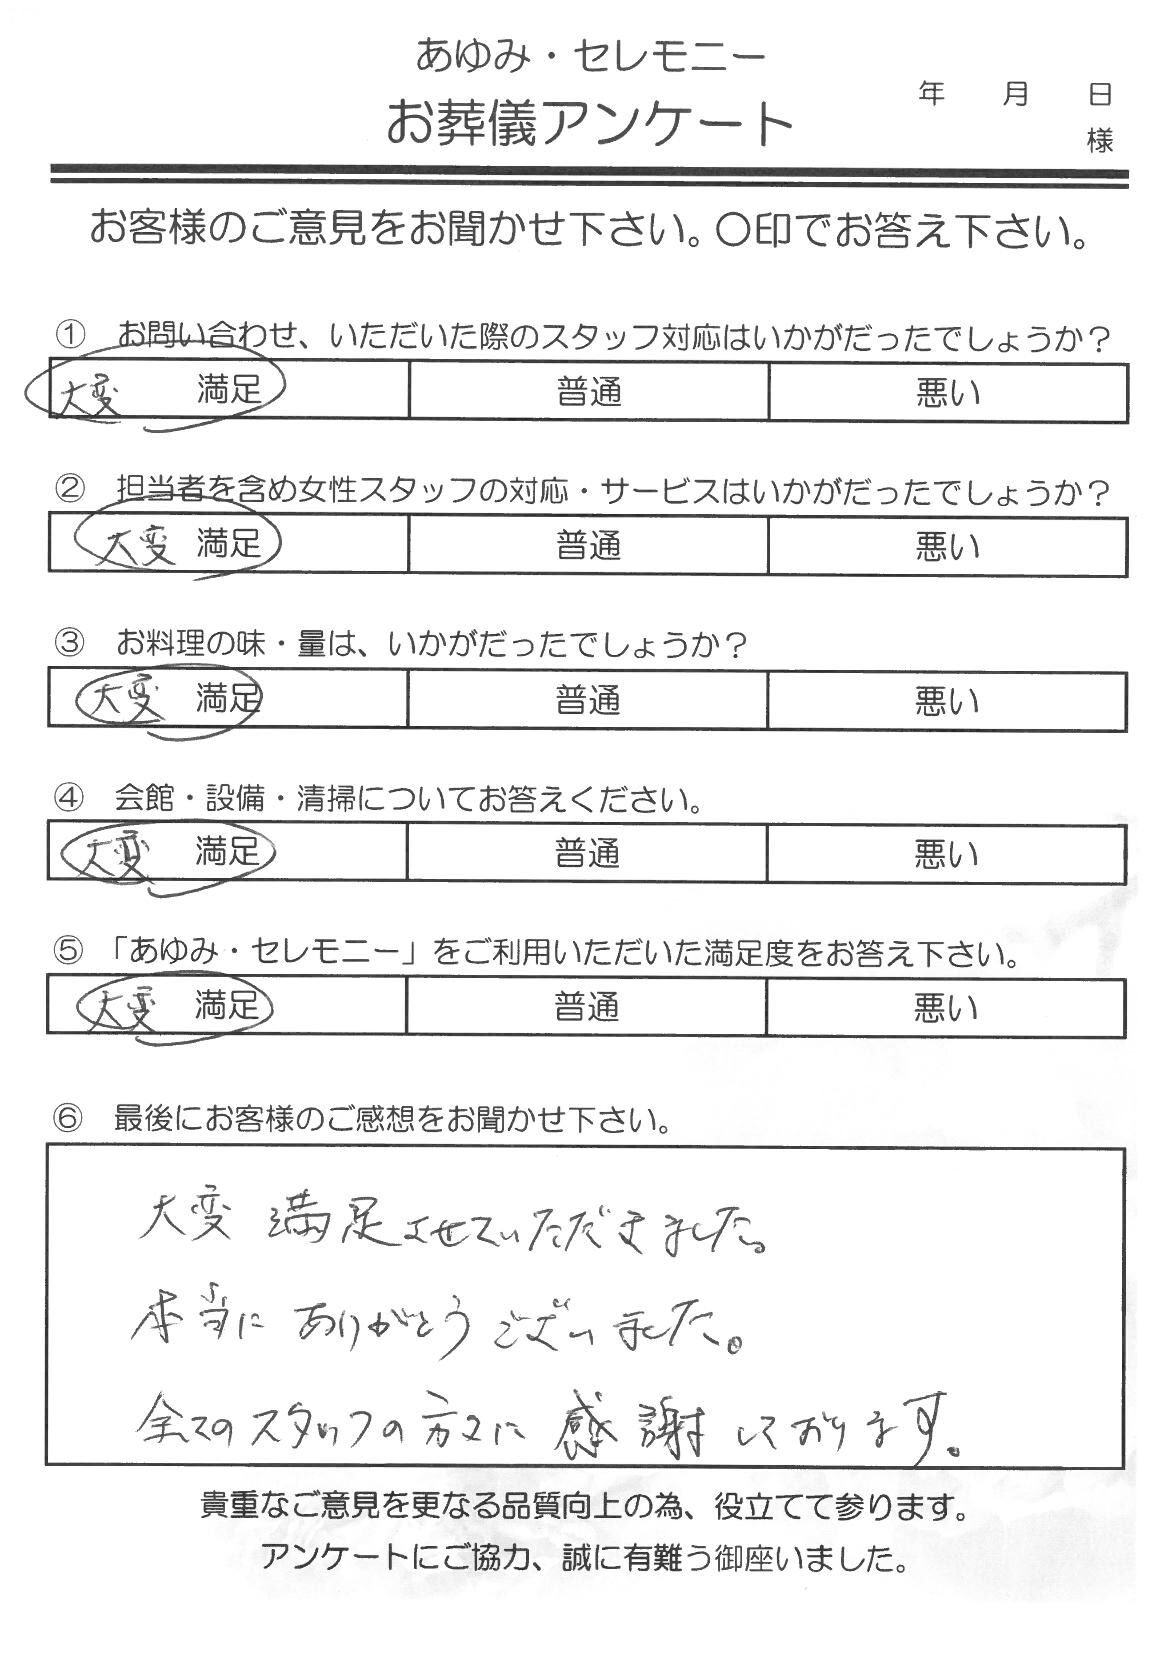 あゆみ・セレモニー
お葬儀アンケート
年 月 日
様
お客様のご意見をお聞かせ下さい。〇印でお答え下さい。
① お問い合わせ、いただいた際のスタッフ対応はいかがだったでしょうか？
大変 満足 普通 悪い
② 担当者を含め女性スタッフの対応・サービスはいかがだったでしょうか？
大変 満足 普通 悪い
③ お料理の味・量は、いかがだったでしょうか？
大変 満足 普通 悪い
④ 会館・設備・清掃についてお答えください。
大変 満足 普通 悪い
⑤ 「あゆみ・セレモニー」をご利用いただいた満足度をお答え下さい。
大変 満足 普通 悪い
⑥ 最後にお客様のご感想をお聞かせ下さい。
大変 満足させていただきました。
本当に ありがとう ございました。
全てのスタッフの方々に 感謝しております。
貴重なご意見を更なる品質向上の為、役立てて参ります。
アンケートにご協力、誠に有難う御座いました。